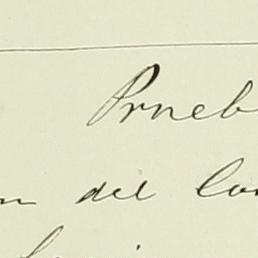 Prueb
n del Con